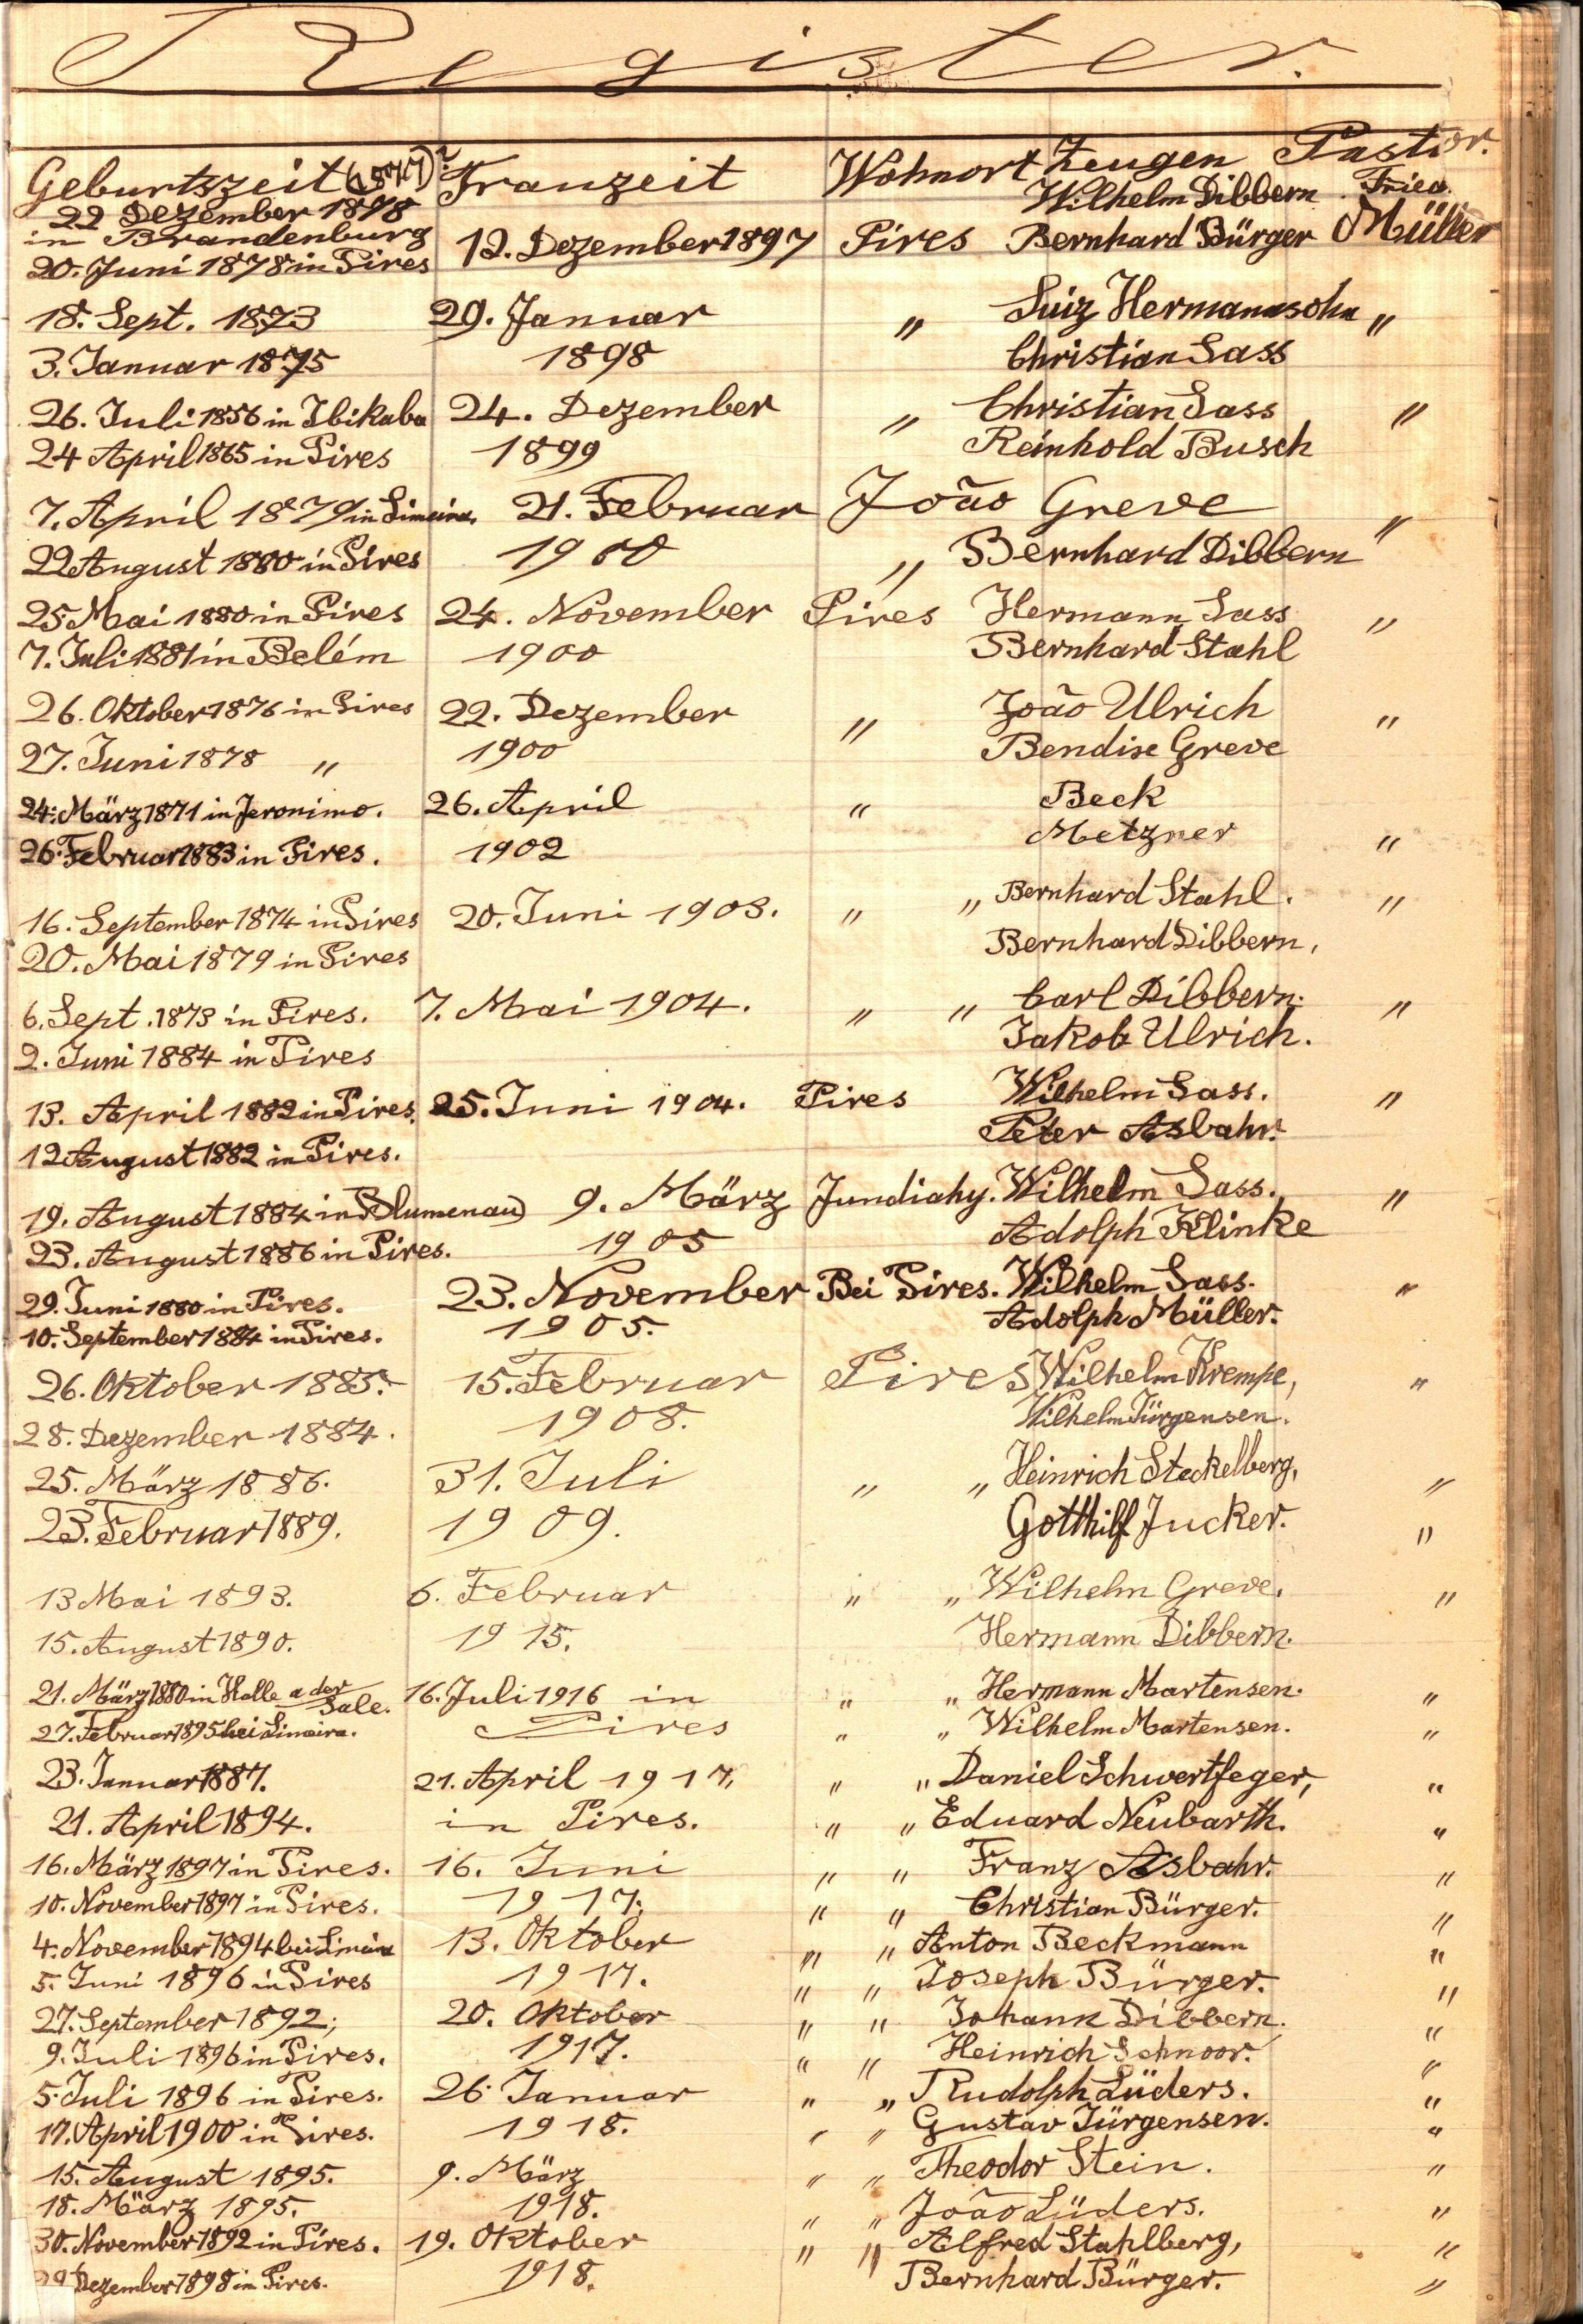 Register.
Geburtszeit (1877)? Trauzeit Wohnort Zeugen Pastor.
22 Dezember 1898 Wilhelm Dibbern Fried.
in Brandenburg 12. Dezember 1897 Pires Bernhard Bürger Müller
20. Juni 1878 in Pires
18. Sept. 1873 29. Januar " Luiz Hermannsohn "
3. Januar 1875 1898 Christian Sass
26. Juli 1856 in Ibikaba 24. Dezember " Christian Sass "
24 April 1865 in Pires 1899 Reinhold Busch
7. April 1879 in Limeira. 21. Februar João Greve "
22 August 1880 in Pires 1900 " Bernhard Dibbern
25 Mai 1880 in Pires 24. November Pires Hermann Sass "
7. Juli 1881 in Belém 1900 Bernhard Stahl
26. Oktober 1876 in Pires 22. Dezember " João Ulrich "
27. Juni 1878 " 1900 Bendix Greve
24. März 1871 in Jeronimo. 26. April " Beck
26. Februar 1883 in Pires. 1902 Metzner "
16. September 1874 in Pires 20. Juni 1903. " " Bernhard Stahl. "
20. Mai 1879 in Pires Bernhard Dibbern,
6. Sept. 1873 in Pires. 7. Mai 1904. " " Carl Dibbern. "
2. Juni 1884 in Pires Jakob Ulrich.
13. April 1882 in Pires. 25. Juni 1904. Pires Wilhelm Sass. "
12 August 1882 in Pires. Peter Asbahr.
19. August 1884 in Blumenau) 9. März Jundiahy. Wilhelm Sass. "
23. August 1886 in Pires. 1905 Adolph Klinke
29. Juni 1880 in Pires. 23. November Bei Pires. Wilhelm Sass. "
10. September 1884 in Pires. 1905. Adolph Müller.
26. Oktober 1885. 15. Februar Pires Wilhelm Krempe, "
28. Dezember 1884. 1908. Wilhelm Jürgensen.
25. März 1886. 31. Juli " " Heinrich Stackelberg, "
23. Februar 1889. 1909. Gotthilf Jucker. "
13 Mai 1893. 6. Februar " " Wilhelm Greve. "
15. August 1890. 1915. Hermann Dibbern.
21. März 1880 in Halle a der Sale. 16. Juli 1916 in " " Hermann Martensen. "
27. Februar 1895 bei Limeira. Pires " " Wilhelm Martensen. "
23. Januar 1887. 21. April 1917, " " Daniel Schwertfeger, "
21. April 1894. in Pires. " " Eduard Neubarth. "
16. März 1897 in Pires. 16. Juni " " Franz Asbahr. "
10. November 1897 in Pires. 1917. " " Christian Bürger. "
4. November 1894 bei Limeira 13. Oktober " " Anton Beckmann "
5. Juni 1896 in Pires 1917. " " Joseph Bürger. "
27. September 1892; 20. Oktober " " Johann Dibbern. "
9. Juli 1896 in Pires. 1917. " " Heinrich Schnoor. "
5. Juli 1896 in Pires. 26. Januar " " Rudolph Lüders. "
17. April 1900 in Pires. 1918. " " Gustav Jürgensen. "
15. August 1895. 9. März " " Theodor Stein. "
18. März 1895. 1918. " " João Lüders. "
30. November 1892 in Pires. 19. Oktober " " Alfred Stahlberg, "
29 Dezember 1898 in Pires. 1918. Bernhard Bürger. "